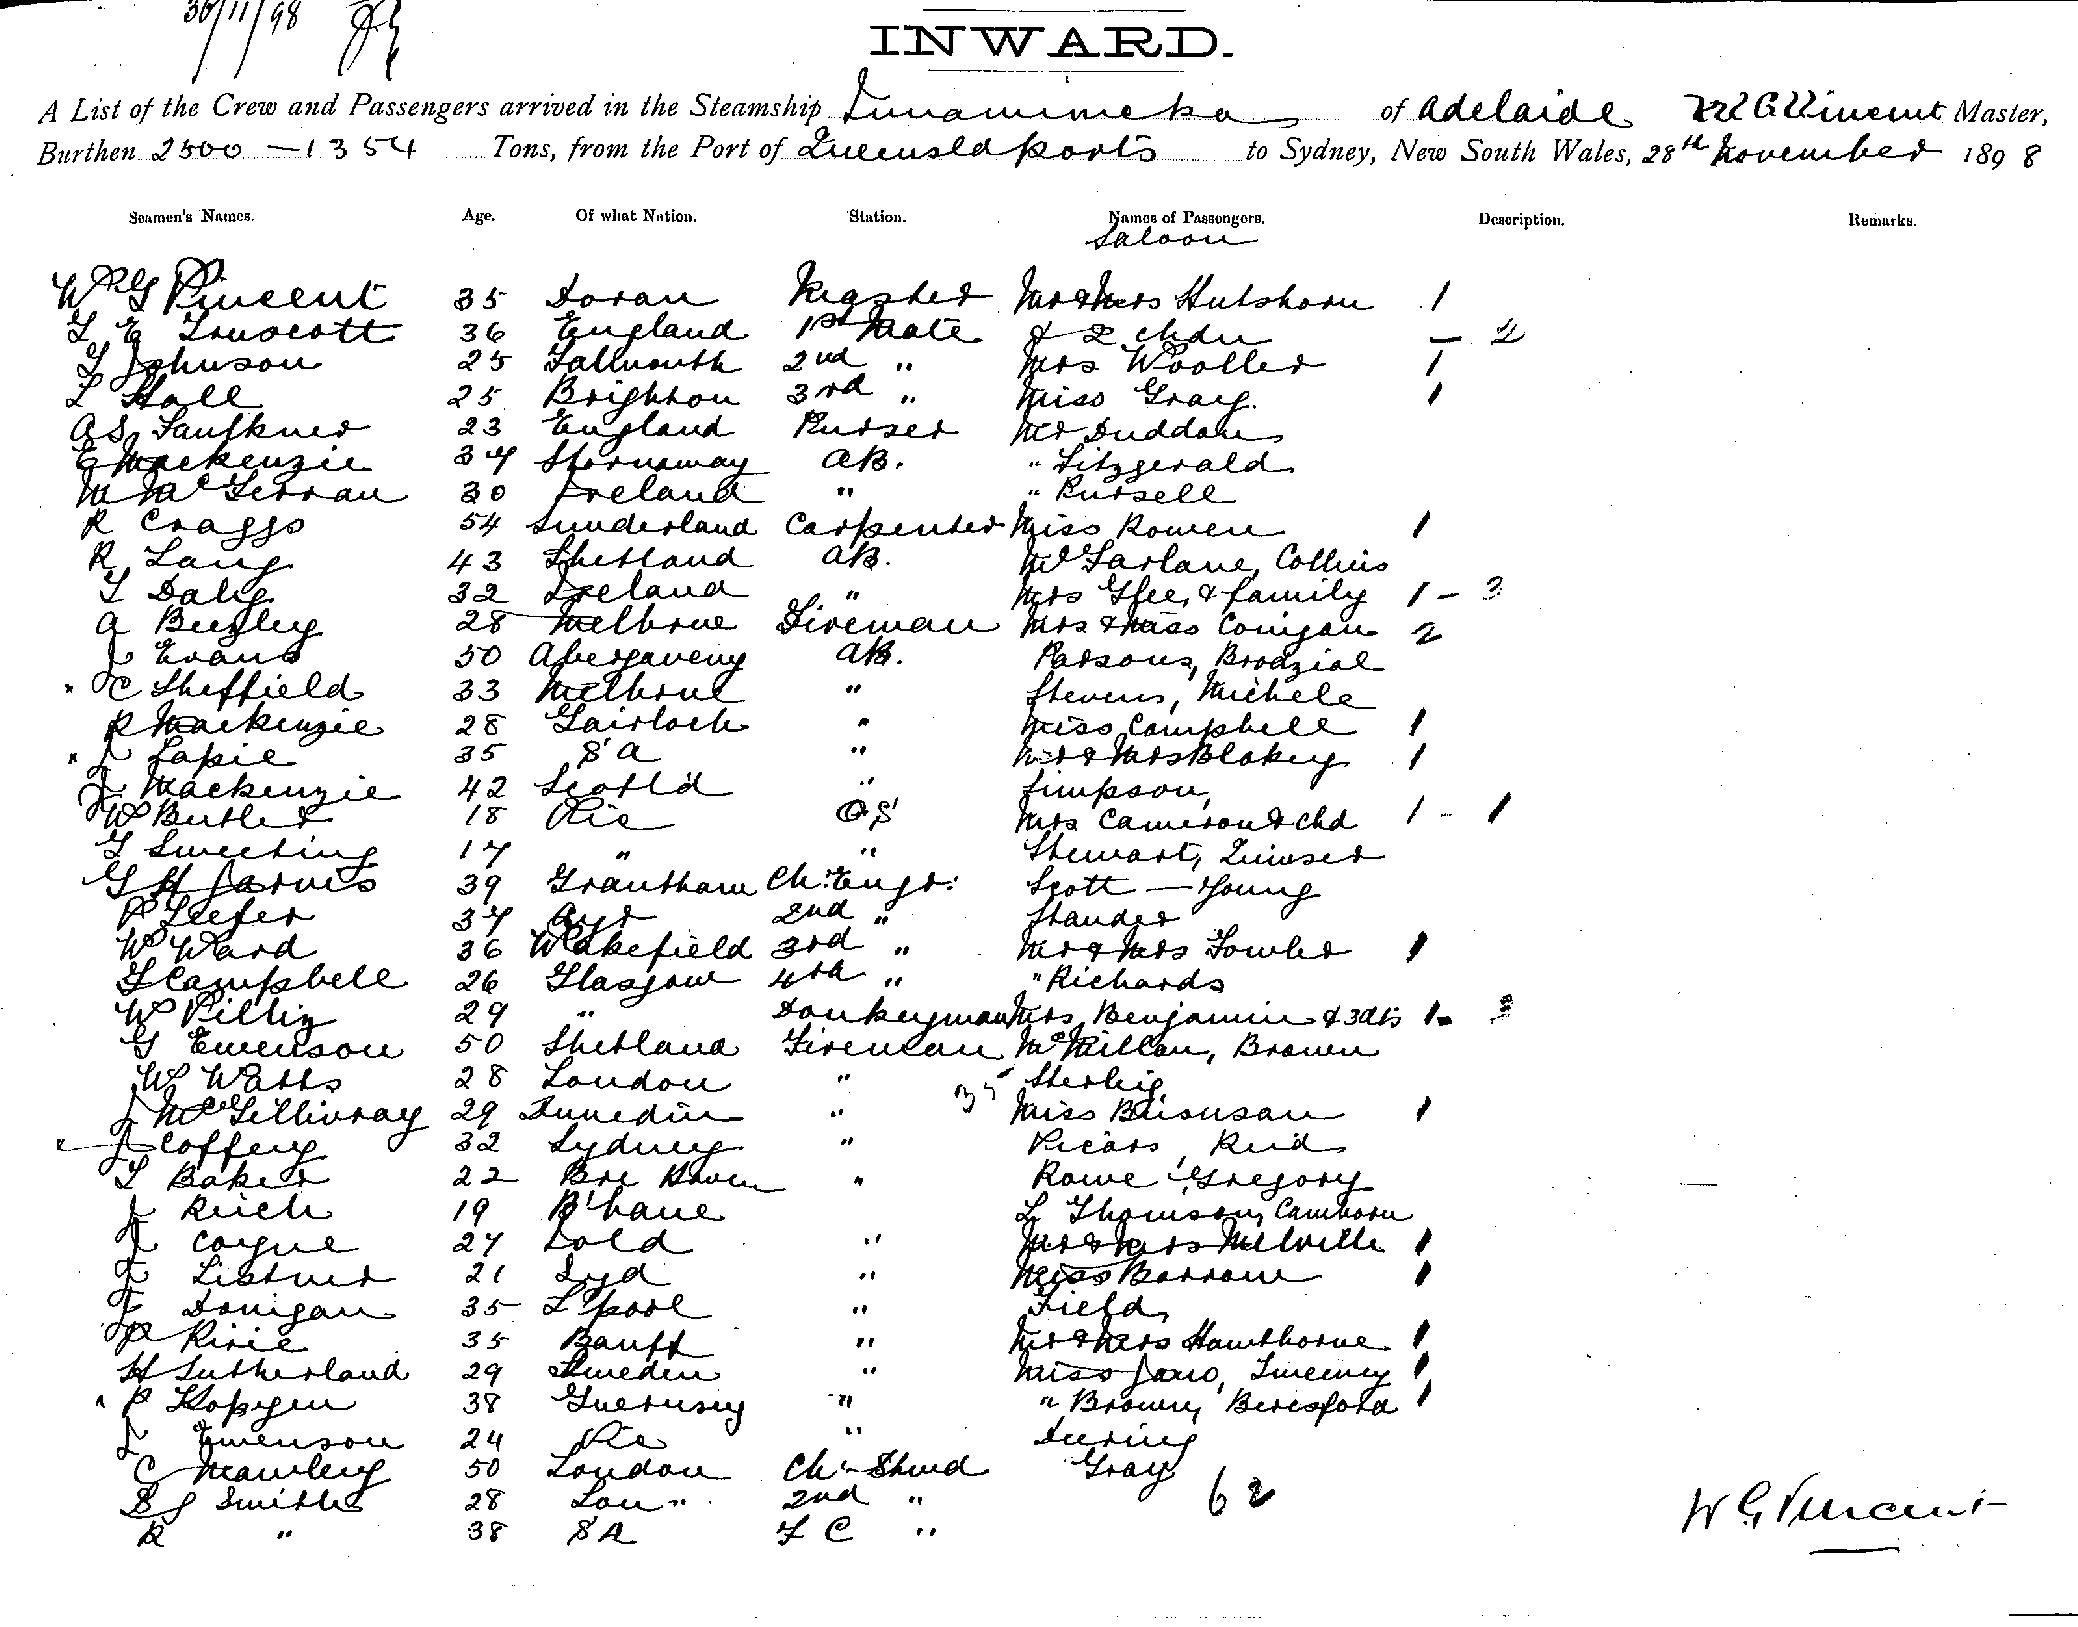 30/11/98
INWARD.
A List of the Crew and Passengers arrived in the Steamship Innamincka of Adelaide W G Vincent Master,
Burthen 2500 — 1354 Tons, from the Port of Queensld ports to Sydney, New South Wales, 28th November 1898
Seamen's Names. Age. Of what Nation. Station. Names of Passengers. Description. Remarks.
Saloon
W G Vincent 35 Master Mr & Mrs Hutshorn 1
G E Truscott 36 England 1st Mate & 2 chdn — 2
Johnson 25 Falmouth 2nd " Mrs Wooller 1
Hall 25 Brighton 3rd " Miss Gray. 1
A S Faulkner 23 England Purser Mr Duddan
E Mackenzie 37 Stornaway AB. " Fitzgerald
M McGerran 30 Ireland " " Russell
R Craggs 54 Sunderland Carpenter Miss Rowen 1
R Lang 43 Shetland AB. McFarlane, Collins
T Daly 32 Ireland " Mrs Gfee, & family 1 - 3
A Beesley 28 Melbrne Fireman Mrs & Miss Conigan 2
J Evans 50 Abergaveny AB. Parsons, Brodziak
C Sheffield 33 Melbrne " Stevens, Michele
R Mackenzie 28 Gairloch " Miss Campbell 1
J Lapie 35 S A " Mr & Mrs Blakey 1
J Mackenzie 42 Scotl'd " Simpson,
W Butler 18 Pie O S Mrs Cameron & chd 1 - 1
G Sweeting 17 " " Stewart,
G H Jarvis 39 Grantham Ch. Engr. Scott — Young
P Leefer 37 Ayr 2nd " Stander
W Ward 36 Wakefield 3rd " Mr & Mrs Fowler 1
G Campbell 26 Glasgow 4th " " Richards
W 29 " Donkeyman Mrs Benjamin & 3 dts 1 - 3
G Ewenson 50 Shetland Fireman McMillan, Brown
W Watts 28 London " Sterling
J McGillivray 29 Dunedin " Miss 1
J Coffey 32 Sydney " Picars, Reid
T Baker 22 Bre Haven " Rowe, Gregory
J Reich 19 B'bane L Thomson, Camborn
J Coyne 27 " Mr & Mrs Melville 1
J Listner 21 Syd " Miss Barrow 1
J Donigan 35 L'pool " Field,
P Ririe 35 Banff " Mr & Mrs Hawthorne 1
H Sutherland 29 Sweden " Miss Jano, Sweeney 1
P Hopgen 38 Guernsey " " Brown, Beresford 1
J Ewenson 24 Pie " Deering
C Mawley 50 London Ch. Stwd Gray
S J Smith 28 Lon " 2nd " 62
R " 38 S A F C "
W G Vincent